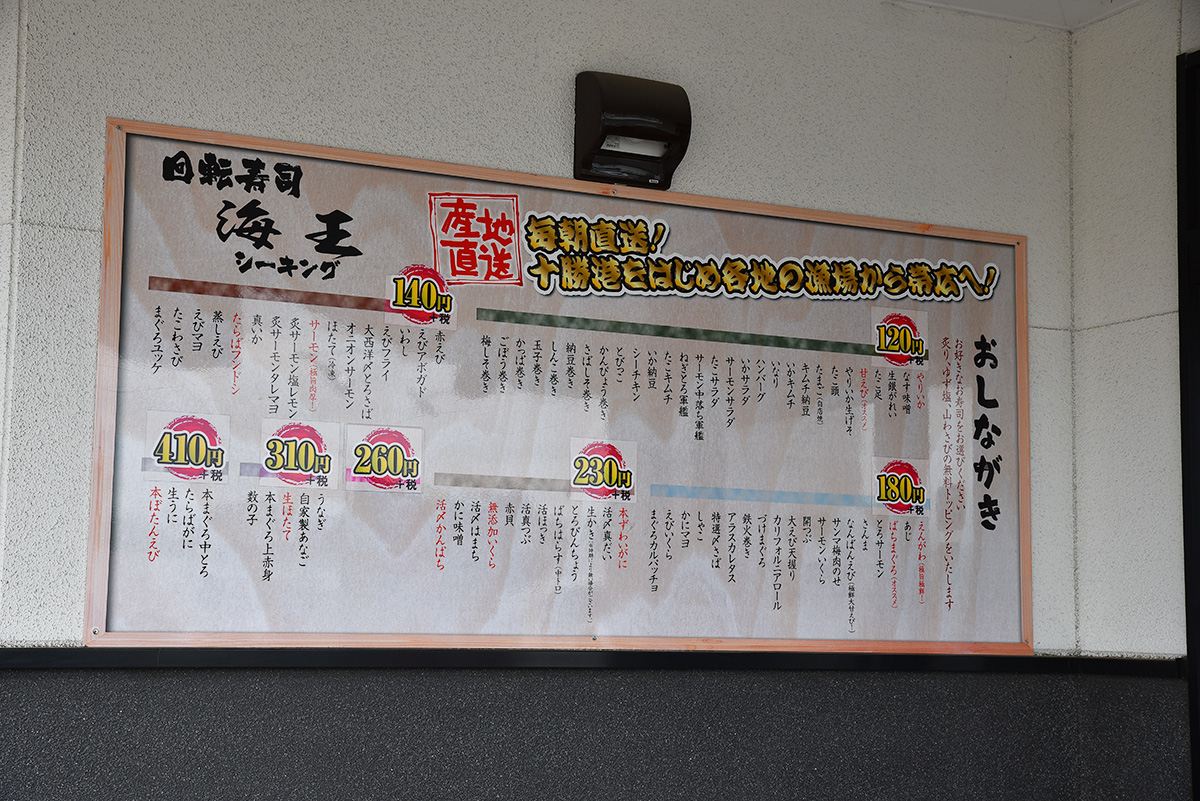 回転寿司
海王
シーキング
産地
直送
毎朝直送!
十勝港をはじめ各地の漁場から帯広へ!
おしながき
お好きなお寿司をお選びください
炙り、ゆず塩、山わさびの無料トッピングをいたします
120円
+税
やりいか
なす味噌
生銀がれい
たこ足
甘えび(オススメ)
やりいか生げそ
たこ頭
たまご(自店焼)
キムチ納豆
いかキムチ
いなり
ハンバーグ
いかサラダ
サーモンサラダ
たこサラダ
サーモン中落ち軍艦
ねぎとろ軍艦
たこキムチ
いか納豆
シーチキン
とびっこ
かんぴょう巻き
さばしそ巻き
納豆巻き
しんこ巻き
玉子巻き
かっぱ巻き
ごぼう巻き
梅しそ巻き
140円
+税
赤えび
えびアボガド
いわし
えびフライ
大西洋〆とろさば
オニオンサーモン
ほたて(冷凍)
サーモン(極旨肉厚!)
炙サーモン塩レモン
炙サーモンタレマヨ
真いか
たらばフントン
蒸しえび
えびマヨ
たこわさび
まぐろユッケ
180円
+税
えんがわ(極旨極鮮!)
あじ
ばちまぐろ(オススメ)
とろサーモン
さんま
なんばんえび(極鮮大甘えび!)
サンマ梅肉のせ
サーモンいくら
開つぶ
大えび天握り
カリフォルニアロール
づけまぐろ
鉄火巻き
アラスカレタス
特選〆さば
しゃこ
かにマヨ
えびいくら
まぐろカルパッチョ
230円
+税
本ずわいがに
活〆真だい
生かき
とろびんちょう
ばちはらす(中トロ)
活ほっき
活真つぶ
赤貝
無添加いくら
活〆はまち
かに味噌
活〆かんぱち
260円
+税
310円
+税
うなぎ
自家製あなご
生ほたて
本まぐろ上赤身
数の子
410円
+税
本まぐろ中とろ
たらばがに
生うに
本ぼたんえび